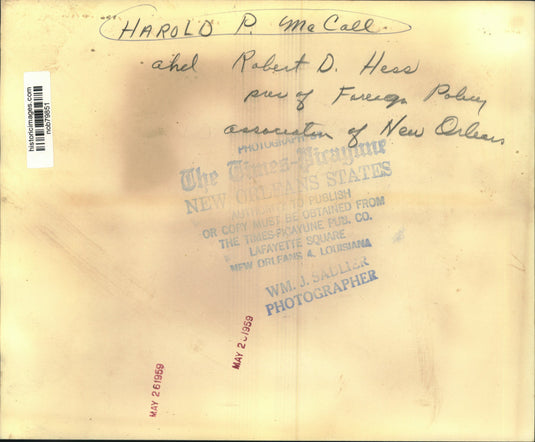 HAROLD P. McCall
and Robert D. Hess
pres of Foreign Policy
association of New Orleans.
PHOTOGRAPH
The Times-Picayune
NEW ORLEANS STATES
AUTHORITY TO PUBLISH
OR COPY MUST BE OBTAINED FROM
THE TIMES-PICAYUNE PUB. CO.
LAFAYETTE SQUARE
NEW ORLEANS 4, LOUISIANA
WM. J. SADLIER
PHOTOGRAPHER
MAY 2 1959
MAY 261959
historicimages.com
nob79851